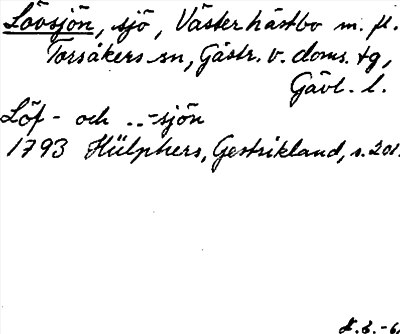 Lövsjön, sjö, Västerhästbo m. fl.
Torsåkers sn, Gästr. v. doms. tg,
Gävl. l.
Löf- och ..-sjön
1793 Hülphers, Gestrikland, s. 201.